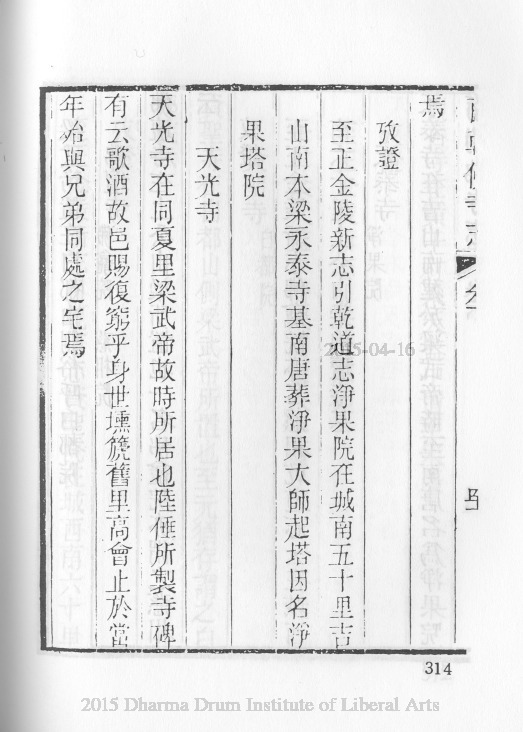 焉
攷證
至正金陵新志引乾道志淨果院在城南五十里吉
山南本梁永泰寺基南唐葬淨果大師起塔因名淨
果塔院
天光寺
天光寺在同夏里梁武帝故時所居也陸倕所製寺碑
有云歌酒故邑賜復窮乎身世壎篪舊里高會止於當
年始與兄弟同處之宅焉
314
2015-04-16
2015 Dharma Drum Institute of Liberal Arts